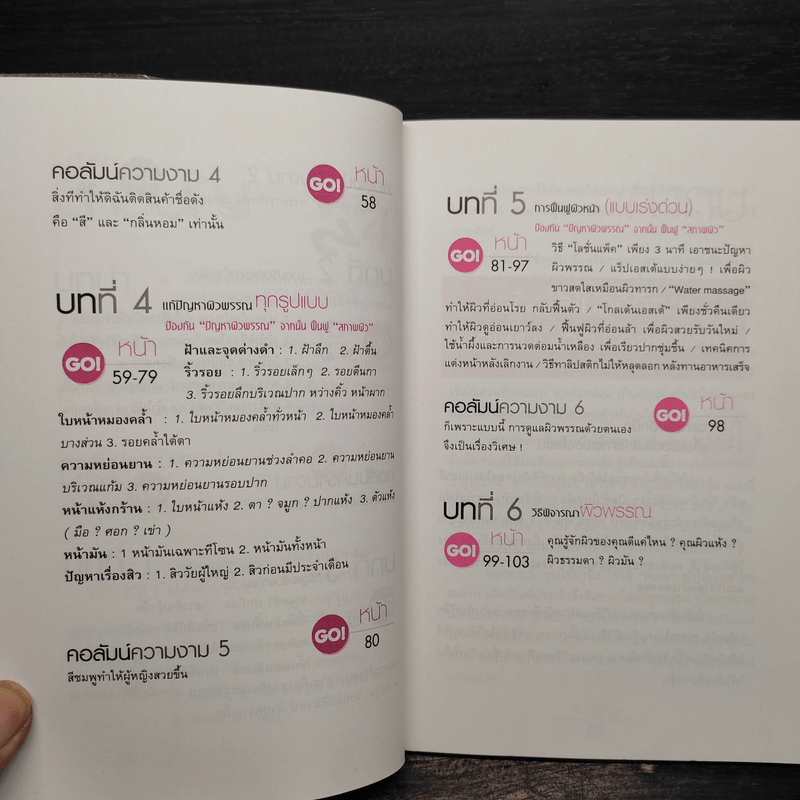 คอลัมน์ความงาม 4
GO! หน้า
58
สิ่งที่ทำให้ดิฉันติดสินค้าชื่อดัง
คือ “สี” และ “กลิ่นหอม” เท่านั้น
บทที่ 4 แก้ปัญหาผิวพรรณ ทุกรูปแบบ
ป้องกัน “ปัญหาผิวพรรณ” จากนั้น ฟื้นฟู “สภาพผิว”
GO! หน้า
59-79
ฝ้าและจุดด่างดำ : 1. ฝ้าลึก 2. ฝ้าตื้น
ริ้วรอย : 1. ริ้วรอยเล็กๆ 2. รอยตีนกา
3. ริ้วรอยลึกบริเวณปาก หว่างคิ้ว หน้าผาก
ใบหน้าหมองคล้ำ : 1. ใบหน้าหมองคล้ำทั่วหน้า 2. ใบหน้าหมองคล้ำ
บางส่วน 3. รอยคล้ำใต้ตา
ความหย่อนยาน : 1. ความหย่อนยานช่วงลำคอ 2. ความหย่อนยาน
บริเวณแก้ม 3. ความหย่อนยานรอบปาก
หน้าแห้งกร้าน : 1. ใบหน้าแห้ง 2. ตา ? จมูก ? ปากแห้ง 3. ตัวแห้ง
( มือ ? ศอก ? เข่า )
หน้ามัน : 1 หน้ามันเฉพาะทีโซน 2. หน้ามันทั้งหน้า
ปัญหาเรื่องสิว : 1. สิววัยผู้ใหญ่ 2. สิวก่อนมีประจำเดือน
GO! หน้า
80
คอลัมน์ความงาม 5
สีชมพูทำให้ผู้หญิงสวยขึ้น
บทที่ 5 การฟื้นฟูผิวหน้า (แบบเร่งด่วน)
ป้องกัน “ปัญหาผิวพรรณ” จากนั้น ฟื้นฟู “สภาพผิว”
GO! หน้า
81-97
วิธี “โลชั่นแพ็ค” เพียง 3 นาที เอาชนะปัญหา
ผิวพรรณ / แร็ปเอสเต้แบบง่ายๆ ! เพื่อผิว
ขาวสดใสเหมือนผิวทารก / “Water massage”
ทำให้ผิวที่อ่อนโรย กลับฟื้นตัว / “โกลเด้นเอสเต้” เพียงชั่วคืนเดียว
ทำให้ผิวดูอ่อนเยาว์ลง / ฟื้นฟูผิวที่อ่อนล้า เพื่อผิวสวยรับวันใหม่ /
ใช้น้ำผึ้งและการนวดต่อมน้ำเหลือง เพื่อเรียวปากชุ่มชื้น / เทคนิคการ
แต่งหน้าหลังเลิกงาน / วิธีทาลิปสติกไม่ให้หลุดลอก หลังทานอาหารเสร็จ
คอลัมน์ความงาม 6
GO! หน้า
98
ก็เพราะแบบนี้ การดูแลผิวพรรณด้วยตนเอง
จึงเป็นเรื่องวิเศษ !
บทที่ 6 วิธีพิจารณาผิวพรรณ
GO! หน้า
99-103
คุณรู้จักผิวของคุณดีแค่ไหน ? คุณผิวแห้ง ?
ผิวธรรมดา ? ผิวมัน ?